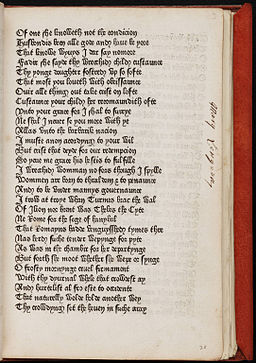 Of one she knoweth not the condicion
Husbondis ben alle gode and haue be yore
That knowe wyuys I dar say nomore
Fadir she sayde thy wretchid child custaunce
Thy yonge doughter fostred vp so softe
That most you loueth with
Ouir alle thing out take crist on lofte
Custaunce your child her recomaundith ofte
Vnto your grace for I shal to surrye
Ne shal I neuer se you more with ye
Allas vnto the barbarik nacion
I muste anon accordyng to your wil
But crist that deyde for our redempcion
So yeue me grace his hestis to fulfille
I wretchid womman no fors though I spylle
Wommen are born to thraldom & to penaunce
And to be vnder mannys gouernaunce
I trow at troye whan Pirrus brac the wal
Or ilion brent was Thebes the Cyte
Ne Rome for the sege of hanybal
That Romayns hadde tymes thre
Nas herd suche tender wepynge for pyte
As was in the chamber for her departynge
But forth she moot whether she wepe or synge
O firste morwynge cruel firmament
With thy dyurnal that crowdest ay
And hurtlest al fro este to occidente
That naturelly wolde holde another wey
Thy crowdyng set the heuen in suche aray